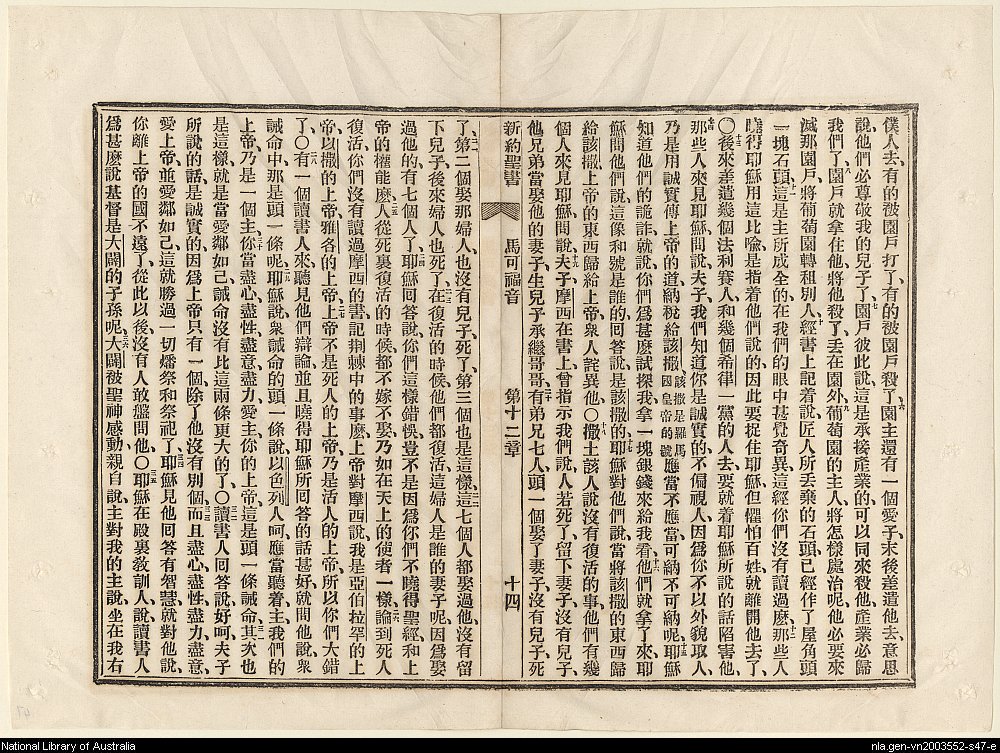 僕人去、有的被園戶打了、有的被園戶殺了、六園主還有一個愛子、末後差遣他去、意思
說、他們必尊敬我的兒子了、七園戶彼此說、這是承接產業的、可以同來殺他、產業必歸
我們了、八園戶就拿住他、將他殺了、丟在園外、九葡萄園的主人、將怎樣處治呢、他必要來
滅那園戶、將葡萄園轉租別人、十經書上記着說、匠人所丟棄的石頭、已經作了屋角頭
一塊石頭、十一這是主所成全的、在我們的眼中甚覺奇異、這經你們沒有讀過麼、十二那些人
曉得耶穌用這比喻、是指着他們說的、因此要捉住耶穌、但懼怕百姓、就離開他去了、
〇十三後來差遣幾個法利賽人、和幾個希律一黨的人去、要就着耶穌所說的話陷害他、
十四那些人來見耶穌問說、夫子、我們知道你是誠實的、不偏視人、因爲你不以外貌取人、
乃是用誠實傳上帝的道、納稅給該撒、該撒是羅馬國皇帝的號應當不應當、可納不可納呢、十五耶穌
知道他們的詭詐、就說、你們爲甚麽試探我、拿一塊銀錢來給我看、十六他們就拿了來、耶
穌問他們說、這像和號是誰的、回答說、是該撒的、十七耶穌對他們說、當將該撒的東西歸
給該撒、上帝的東西歸給上帝、衆人詫異他、〇十八撒土該人說沒有復活的事、他們有幾
個人來見耶穌問說、十九夫子、摩西在書上曾指示我們說、人若死了、留下妻子、沒有兒子、
他兄弟當娶他的妻子、生兒子承繼哥哥、二十有弟兄七人、頭一個娶了妻子、沒有兒子死
新約聖書 馬可福音 第十二章 十四
了、二一第二個娶那婦人、也沒有兒子死了、第三個也是這樣、二二這七個人都娶過他、沒有留
下兒子、後來婦人也死了、二三在復活的時候、他們都復活、這婦人是誰的妻子呢、因爲娶
過他的有七個人了、二四耶穌回答說、你們這樣錯悞、豈不是因爲你們不曉得聖經、和上
帝的權能麽、二五人從死裏復活的時候、都不嫁不娶、乃如在天上的使者一樣、二六論到死人
復活、你們沒有讀過摩西的書、記荆棘中的事麽、上帝對摩西說、我是亞伯拉罕的上
帝、以撒的上帝、雅各的上帝、二七上帝不是死人的上帝、乃是活人的上帝、所以你們大錯
了、〇二八有一個讀書人來、聽見他們辯論、並且曉得耶穌所回答的話甚好、就問他說、衆
誡命中、那是頭一條呢、二九耶穌說、衆誡命的頭一條說、以色列人呵、應當聽着、主我們的
上帝、乃是一個主、三十你當盡心、盡性、盡意、盡力、愛主你的上帝、這是頭一條誡命、三一其次也
是這樣、就是當愛鄰如己、誡命沒有比這兩條更大的了、〇三二讀書人回答說、好呵、夫子
所說的話是誠實的、因爲上帝只有一個、除了他沒有別個、三三而且盡心、盡性、盡力、盡意、
愛上帝、並愛鄰如己、這就勝過一切燔祭和祭祀了、三四耶穌見他回答有智慧、就對他說、
你離上帝的國不遠了、從此以後、沒有人敢盤問他、〇三五耶穌在殿裏教訓人、說、讀書人
爲甚麽說基督是大闢的子孫呢、三六大闢被聖神感動、親自說、主對我的主說、坐在我右
National Library of Australia
nla.gen-vn2003552-s47-e